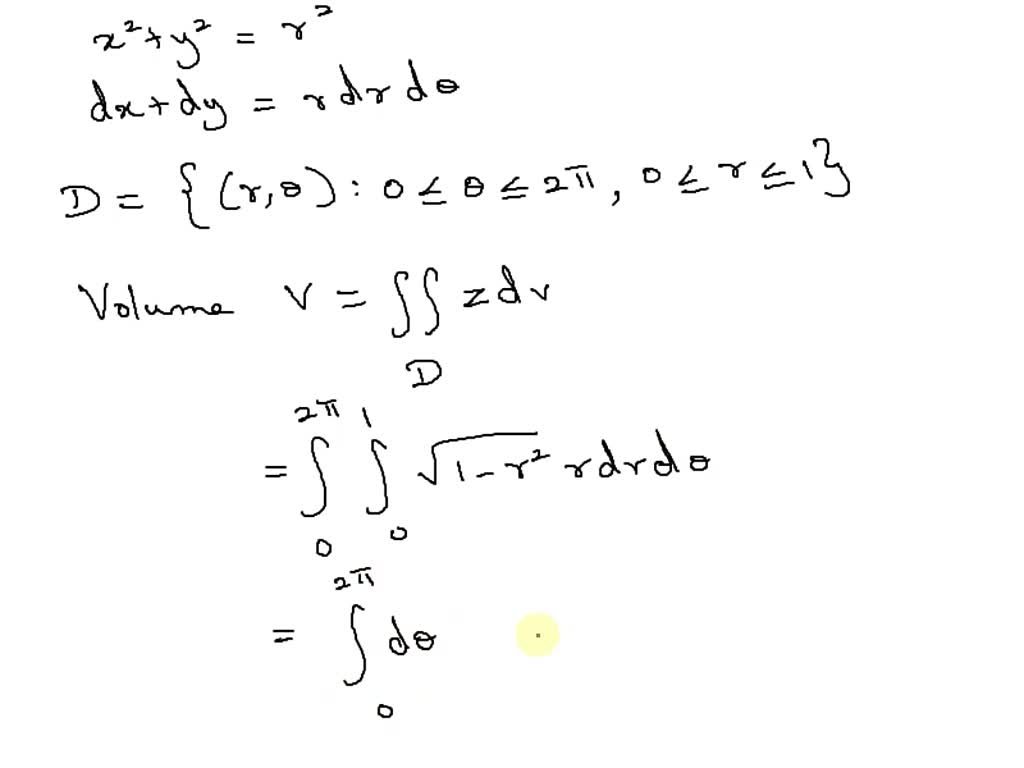 x² + y² = r²
dx + dy = r dr dθ
D = {(r, θ) : 0 ≤ θ ≤ 2π, 0 ≤ r ≤ 1}
Volume V = ∬_D z dv
= ∫_0^{2π} ∫_0^1 √(1 - r²) r dr dθ
= ∫_0^{2π} dθ